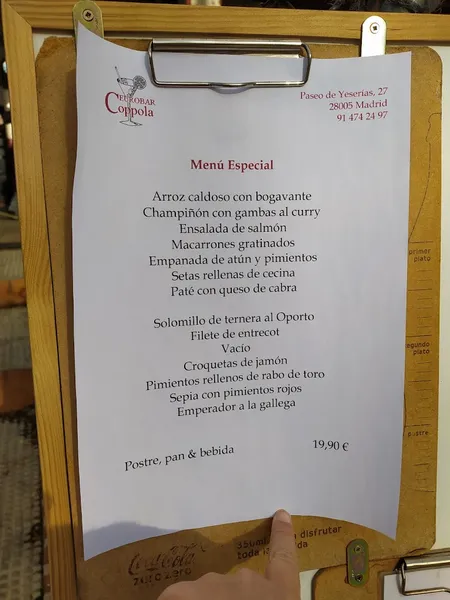 EUROBAR
Coppola
Paseo de Yeserías, 27
28005 Madrid
91 474 24 97
Menú Especial
Arroz caldoso con bogavante
Champiñón con gambas al curry
Ensalada de salmón
Macarrones gratinados
Empanada de atún y pimientos
Setas rellenas de cecina
Paté con queso de cabra
Solomillo de ternera al Oporto
Filete de entrecot
Vacío
Croquetas de jamón
Pimientos rellenos de rabo de toro
Sepia con pimientos rojos
Emperador a la gallega
Postre, pan & bebida 19,90 €
primer
plato
segundo
plato
postre
Coca-Cola
zero zero
disfrutar
toda